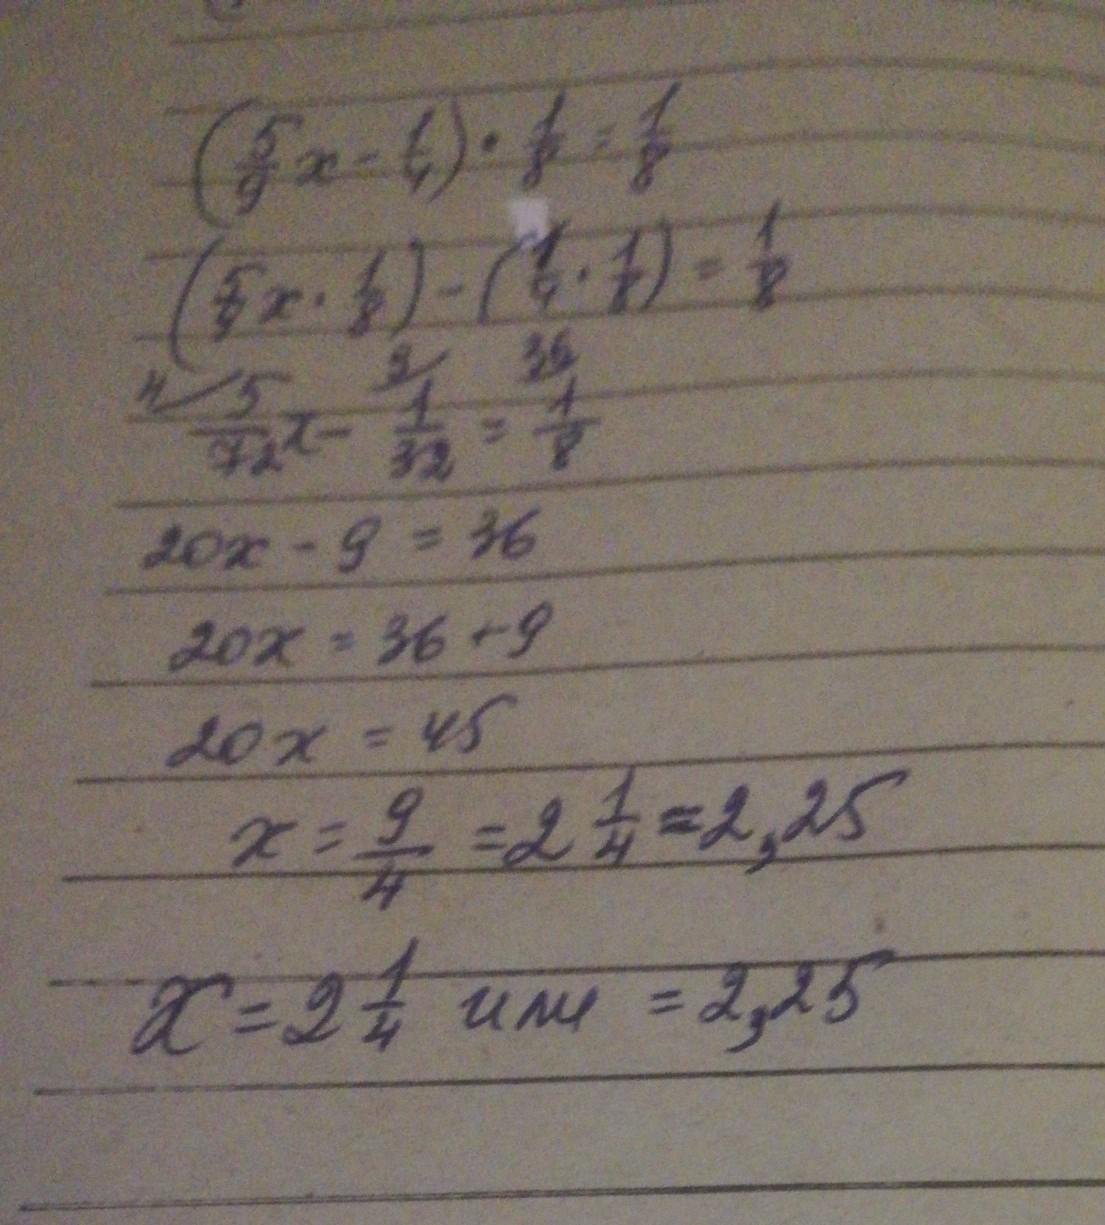 (5/9 x - 1/4) · 1/8 = 1/8
(5/9 x · 1/8) - (1/4 · 1/8) = 1/8
4 9 36
5/72 x - 1/32 = 1/8
20x - 9 = 36
20x = 36 + 9
20x = 45
x = 9/4 = 2 1/4 = 2,25
x = 2 1/4 или = 2,25